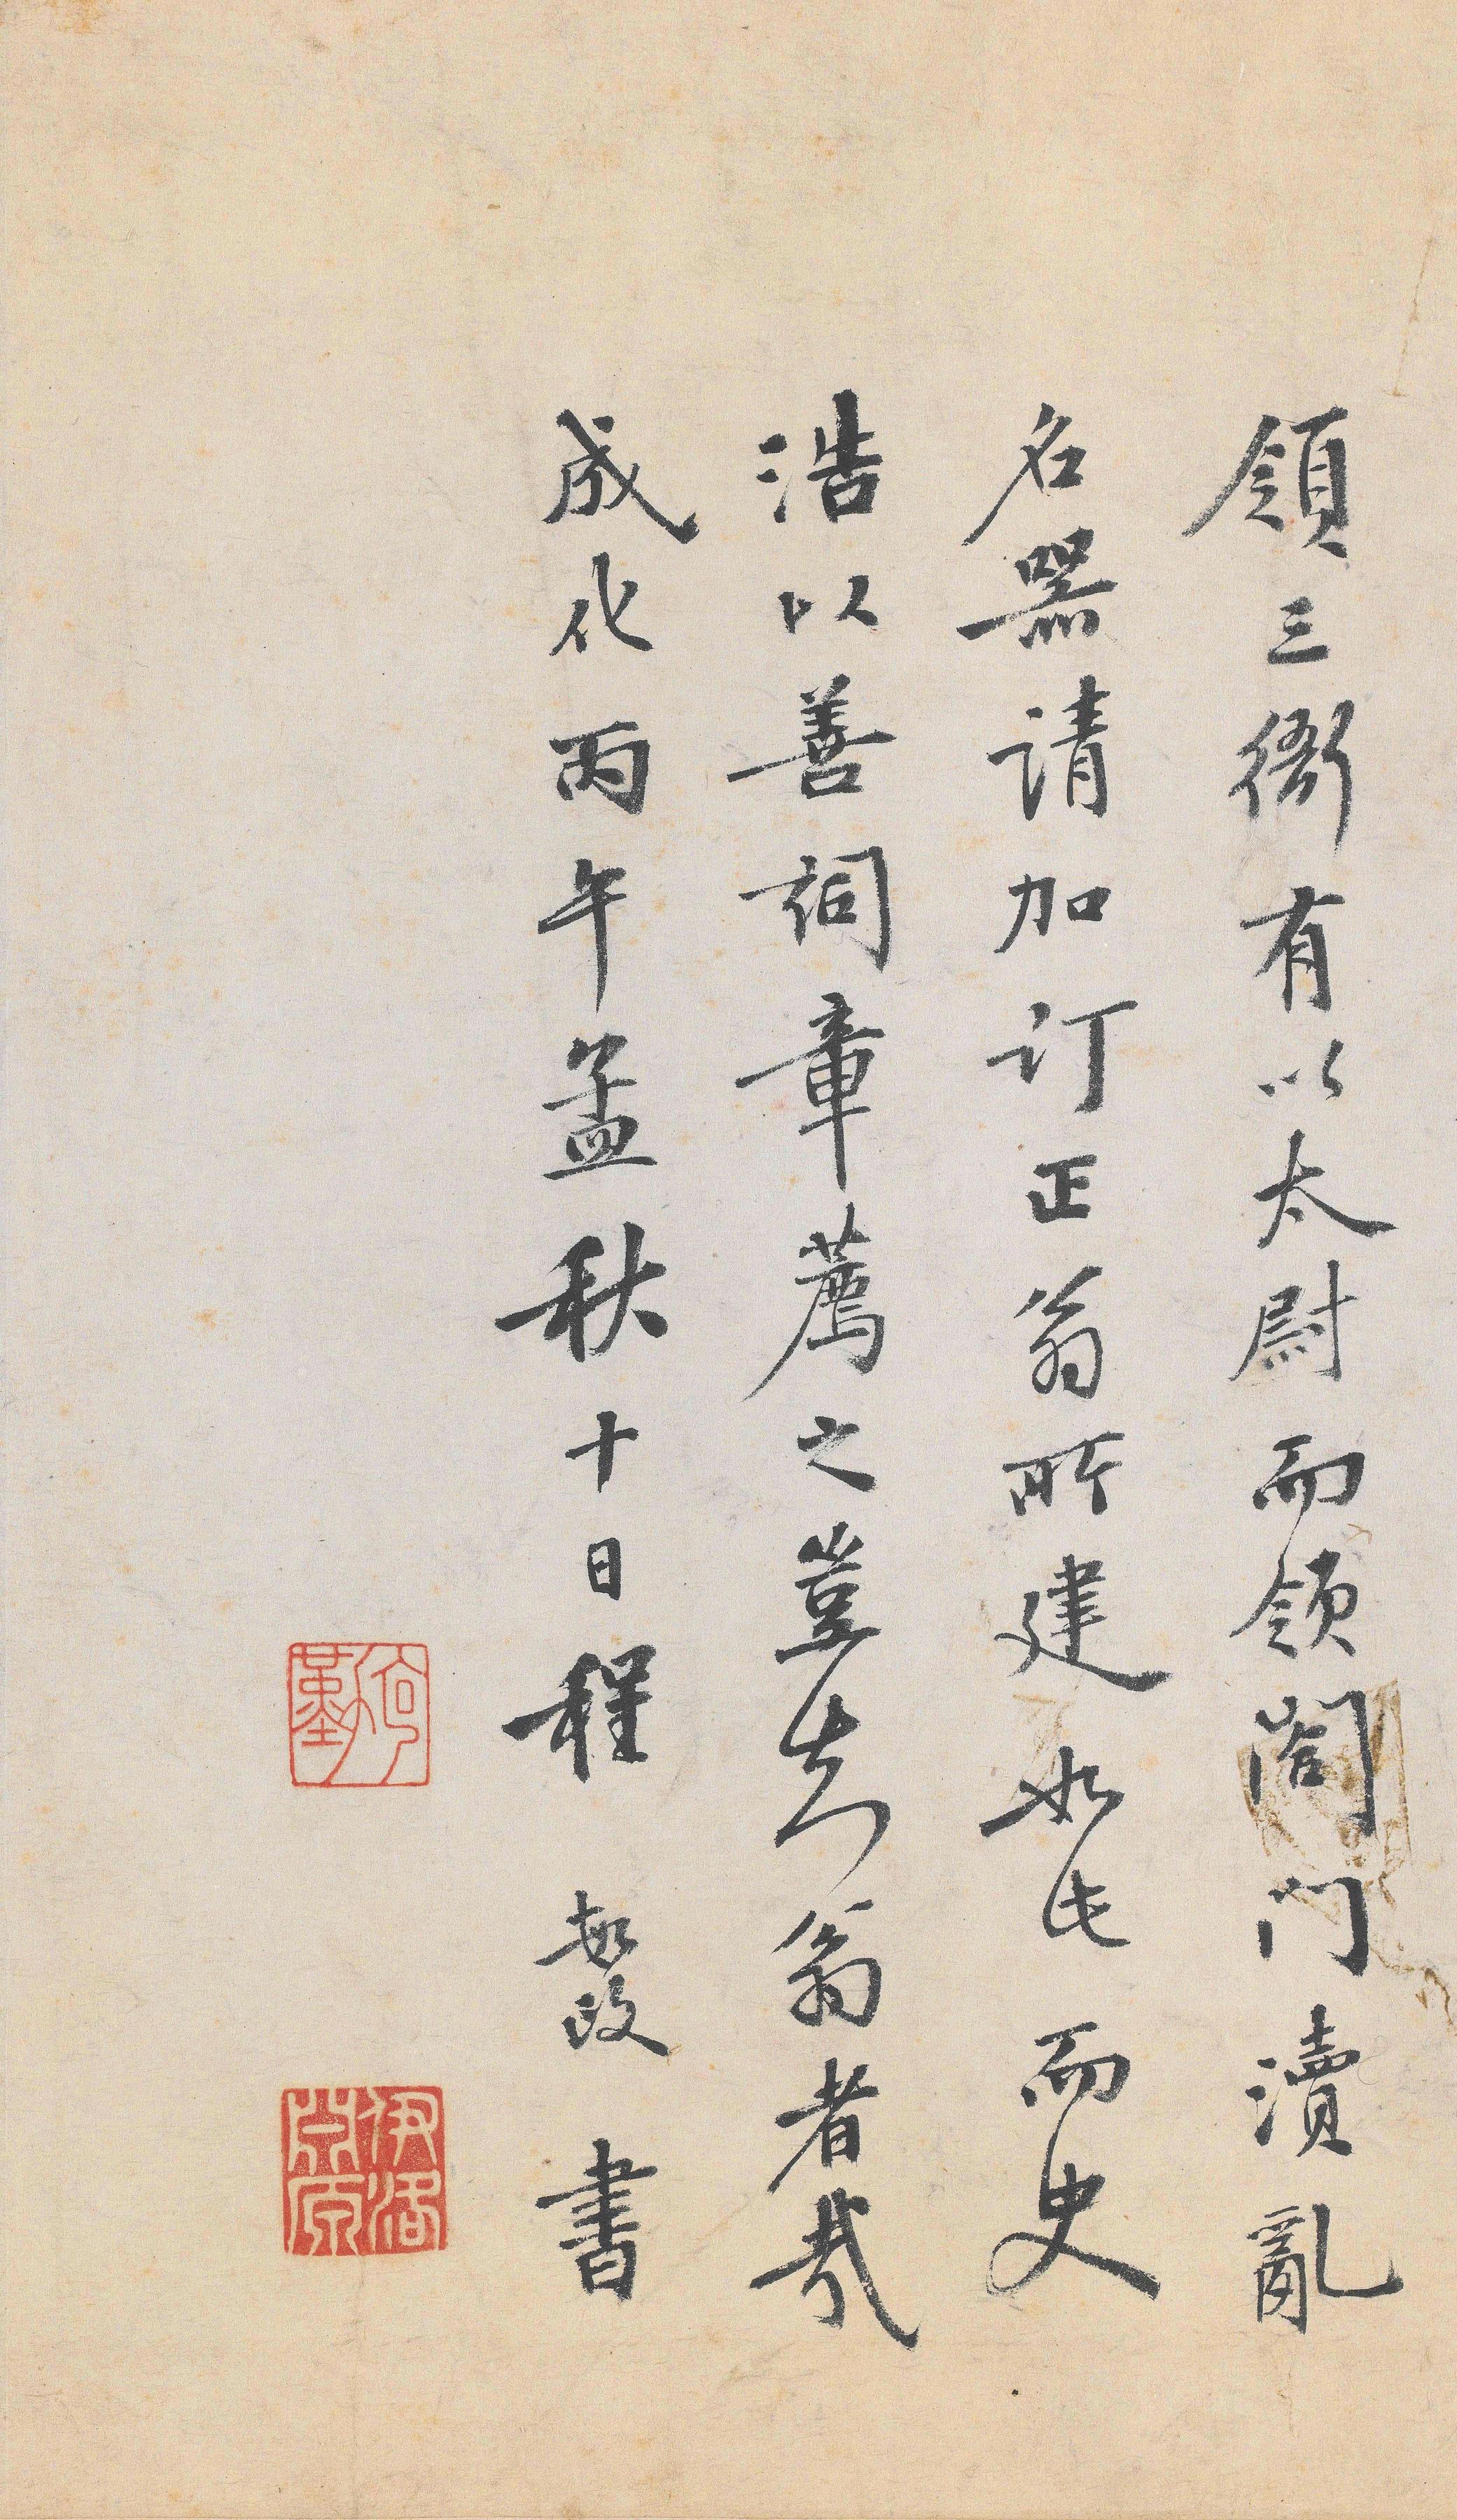 領三衙有以太尉而領閤門瀆亂
名器請加訂正翁所建如此而史
浩以善詞章薦之豈知翁者哉
成化丙午孟秋十日程敏政書
伊洛